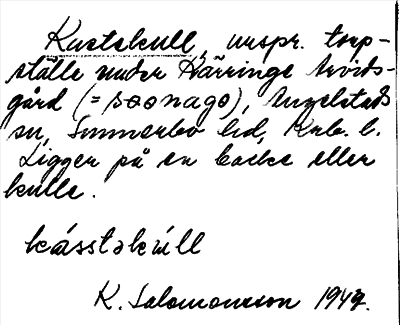 Kastekull, urspr. torp-
ställe under Kärringe Arvids-
gård (= soonago), Angelstads
sn, Sunnerbo hd, Krb. l.
Ligger på en backe eller
kulle.
kásstəkúll
K. Salomonsson 1947.